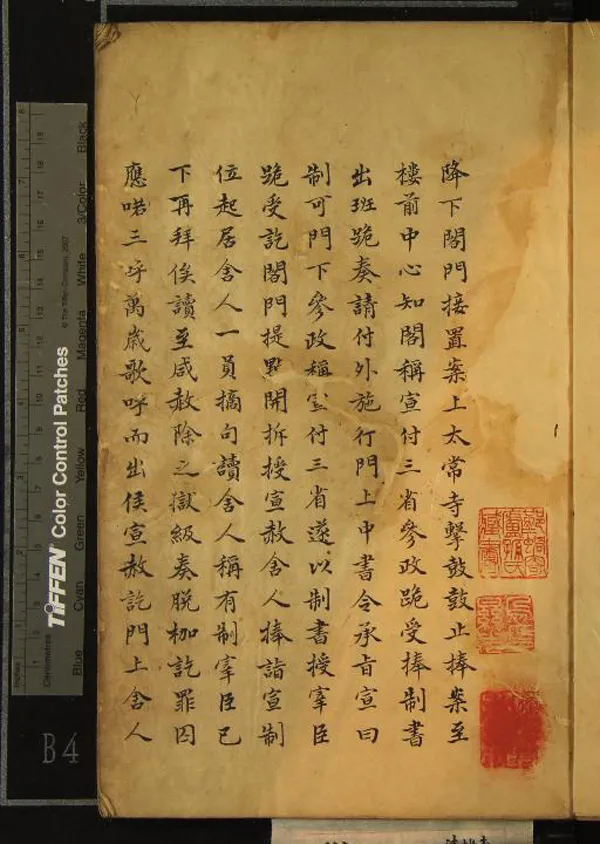 降下閣門接置案上太常寺擊鼓鼓止捧案至
樓前中心知閣稱宣付三省參政跪受捧制書
出班跪奏請付外施行門上中書令承旨宣曰
制可門下參政稱宣付三省遂以制書授宰臣
跪受訖閣門提點開拆授宣赦舍人捧詣宣制
位起居舍人一員摘句讀舍人稱有制宰臣已
下再拜俟讀至咸赦除之獄級奏脫枷訖罪囚
應喏三呼萬歲歌呼而出候宣赦訖門上舍人
TIFFEN Color Control Patches
© The Tiffen Company, 2007
Blue
Cyan
Green
Yellow
Red
Magenta
White
3/Color
Black
Inches
Centimetres
B4